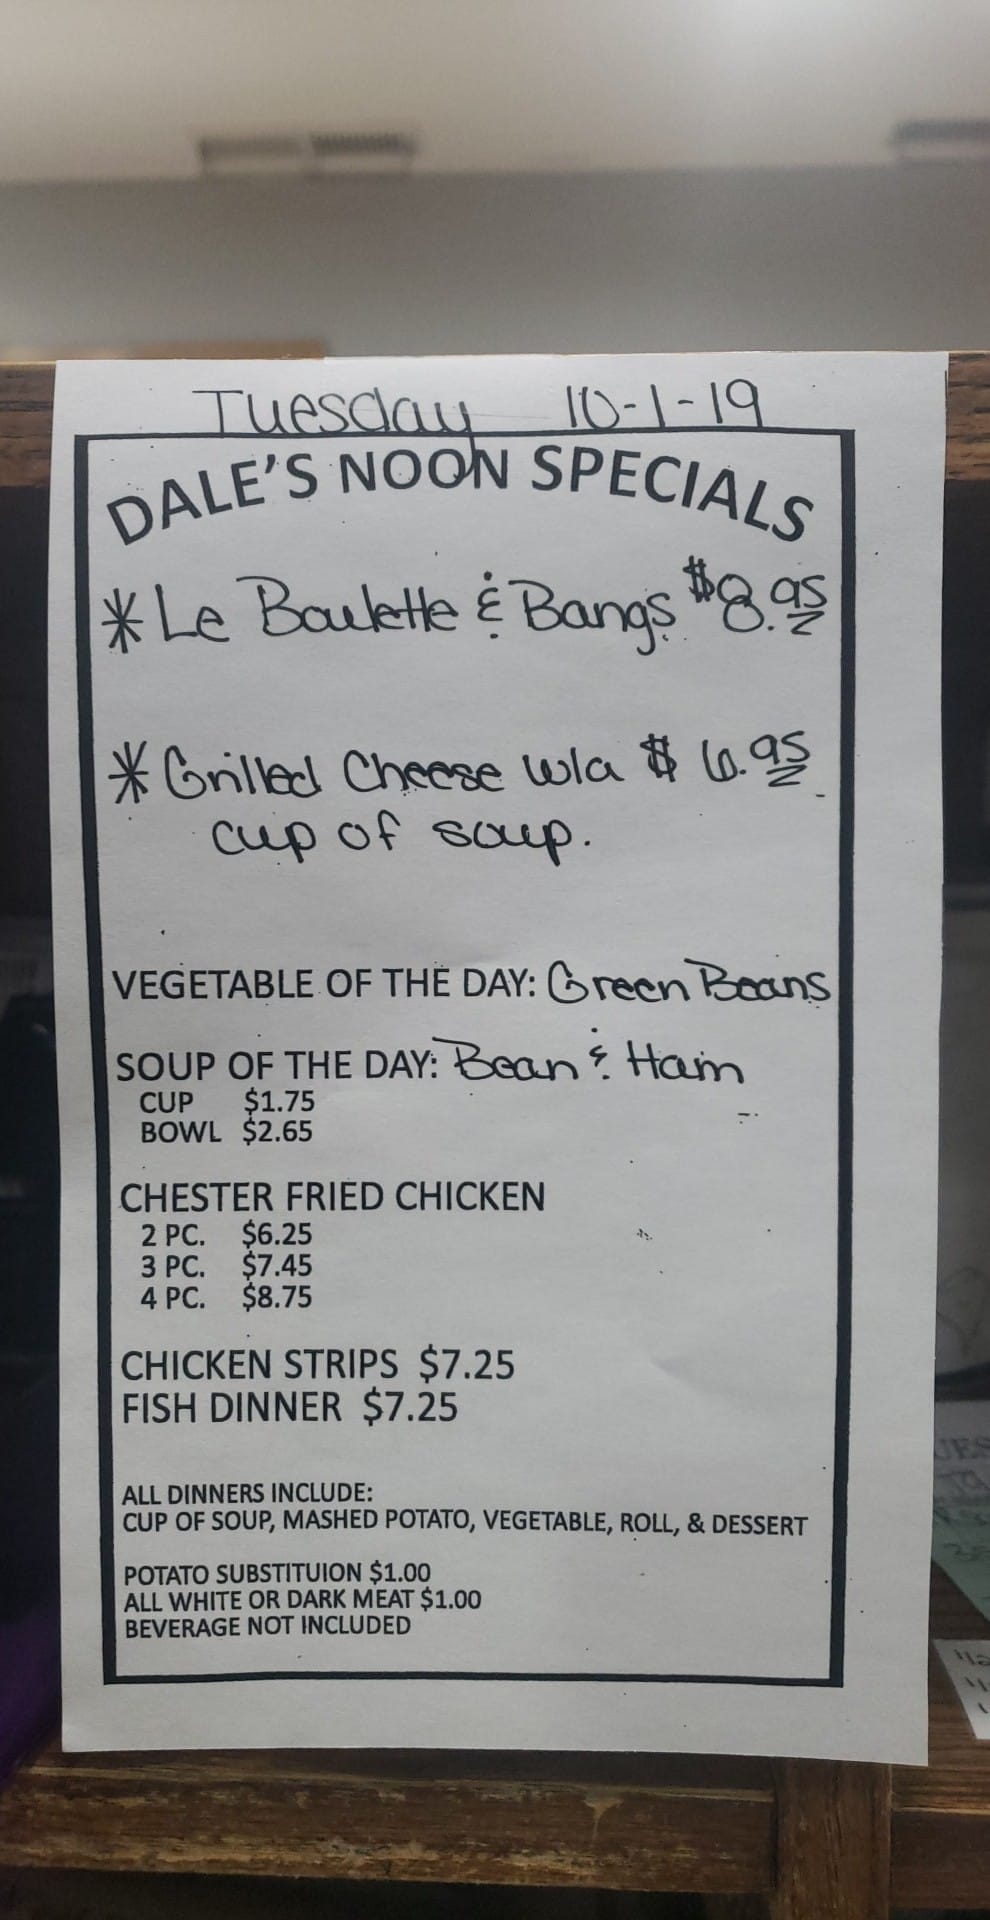 Tuesday 10-1-19
DALE'S NOON SPECIALS
* Le Boulette & Bangs $8.95
* Grilled Cheese w/a $6.95
cup of soup.
VEGETABLE OF THE DAY: Green Beans
SOUP OF THE DAY: Bean & Ham
CUP $1.75
BOWL $2.65
CHESTER FRIED CHICKEN
2 PC. $6.25
3 PC. $7.45
4 PC. $8.75
CHICKEN STRIPS $7.25
FISH DINNER $7.25
ALL DINNERS INCLUDE:
CUP OF SOUP, MASHED POTATO, VEGETABLE, ROLL, & DESSERT
POTATO SUBSTITUION $1.00
ALL WHITE OR DARK MEAT $1.00
BEVERAGE NOT INCLUDED